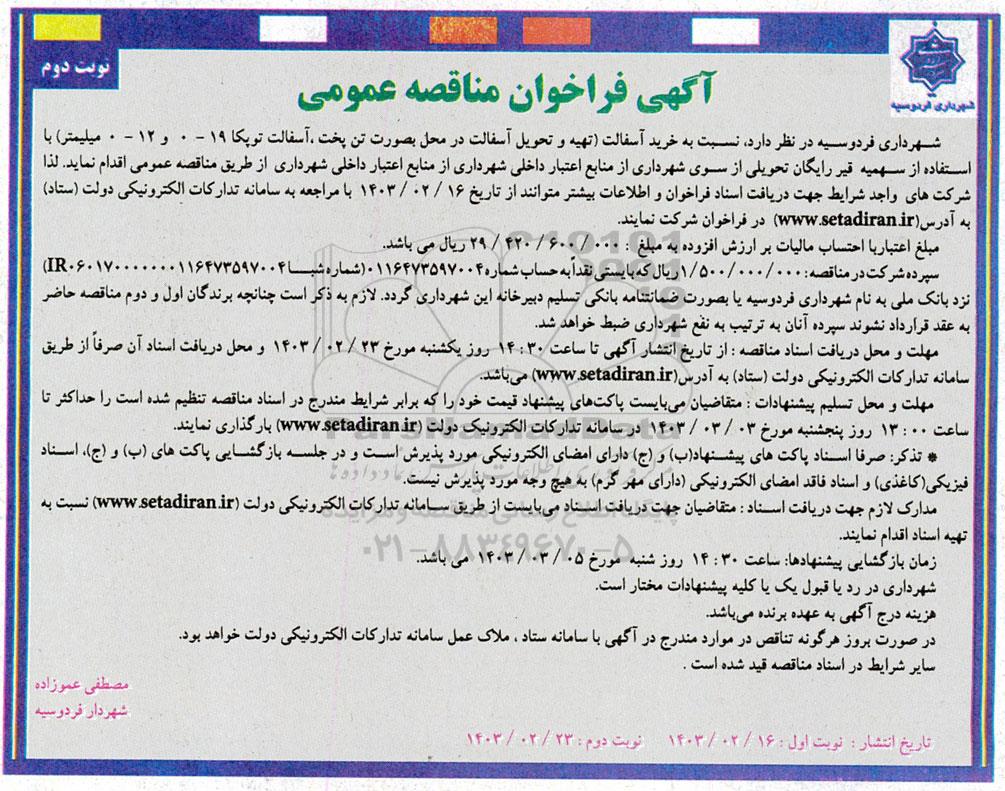 نوبت دوم
شهرداری فردوسیه
آگهی فراخوان مناقصه عمومی
شهرداری فردوسیه در نظر دارد، نسبت به خرید آسفالت (تهیه و تحویل آسفالت در محل بصورت تن پخت ،آسفالت توپکا ۱۹ - ۰ و ۱۲ - ۰ میلیمتر) با
استفاده از سهمیه قیر رایگان تحویلی از سوی شهرداری از منابع اعتبار داخلی شهرداری از منابع اعتبار داخلی شهرداری از طریق مناقصه عمومی اقدام نماید. لذا
شرکت های واجد شرایط جهت دریافت اسناد فراخوان و اطلاعات بیشتر متوانند از تاریخ ۱۶ / ۰۲ / ۱۴۰۳ با مراجعه به سامانه تدارکات الکترونیکی دولت (ستاد)
به آدرس(www.setadiran.ir) در فراخوان شرکت نمایند.
مبلغ اعتباربا احتساب مالیات بر ارزش افزوده به مبلغ : ۰۰۰ / ۶۰۰ / ۴۲۰ / ۲۹ ریال می باشد.
سپرده شرکت در مناقصه: ۱/۵۰۰/۰۰۰/۰۰۰ ریال که بایستی نقداً به حساب شماره ۰۱۱۶۴۷۳۵۹۷۰۰۴ (شماره شبا IR۰۶۰۱۷۰۰۰۰۰۰۰۱۱۶۴۷۳۵۹۷۰۰۴)
نزد بانک ملی به نام شهرداری فردوسیه یا بصورت ضمانتنامه بانکی تسلیم دبیرخانه این شهرداری گردد. لازم به ذکر است چنانچه برندگان اول و دوم مناقصه حاضر
به عقد قرارداد نشوند سپرده آنان به ترتیب به نفع شهرداری ضبط خواهد شد.
مهلت و محل دریافت اسناد مناقصه : از تاریخ انتشار آگهی تا ساعت ۳۰ : ۱۴ روز یکشنبه مورخ ۲۳ / ۰۲ / ۱۴۰۳ و محل دریافت اسناد آن صرفاً از طریق
سامانه تدارکات الکترونیکی دولت (ستاد) به آدرس(www.setadiran.ir) می‌باشد.
مهلت و محل تسلیم پیشنهادات : متقاضیان می‌بایست پاکت‌های پیشنهاد قیمت خود را که برابر شرایط مندرج در اسناد مناقصه تنظیم شده است را حداکثر تا
ساعت ۰۰ : ۱۳ روز پنجشنبه مورخ ۰۳ / ۰۳ / ۱۴۰۳ در سامانه تدارکات الکترونیک دولت (www.setadiran.ir) بارگذاری نمایند.
* تذکر: صرفا اسناد پاکت های پیشنهاد(ب) و (ج) دارای امضای الکترونیکی مورد پذیرش است و در جلسه بازگشایی پاکت های (ب) و (ج)، اسناد
فیزیکی(کاغذی) و اسناد فاقد امضای الکترونیکی (دارای مهر گرم) به هیچ وجه مورد پذیرش نیست.
مدارک لازم جهت دریافت اسناد : متقاضیان جهت دریافت اسناد می‌بایست از طریق سامانه تدارکات الکترونیکی دولت (www.setadiran.ir) نسبت به
تهیه اسناد اقدام نمایند.
زمان بازگشایی پیشنهادها: ساعت ۳۰ : ۱۴ روز شنبه مورخ ۰۵ / ۰۳ / ۱۴۰۳ می باشد.
شهرداری در رد یا قبول یک یا کلیه پیشنهادات مختار است.
هزینه درج آگهی به عهده برنده می‌باشد.
در صورت بروز هرگونه تناقص در موارد مندرج در آگهی با سامانه ستاد ، ملاک عمل سامانه تدارکات الکترونیکی دولت خواهد بود.
سایر شرایط در اسناد مناقصه قید شده است .
مصطفی عموزاده
شهردار فردوسیه
تاریخ انتشار : نوبت اول : ۱۶ / ۰۲ / ۱۴۰۳ نوبت دوم : ۲۳ / ۰۲ / ۱۴۰۳
ParsNamadData
۰۲۱-۸۸۳۴۹۶۷۰-۵